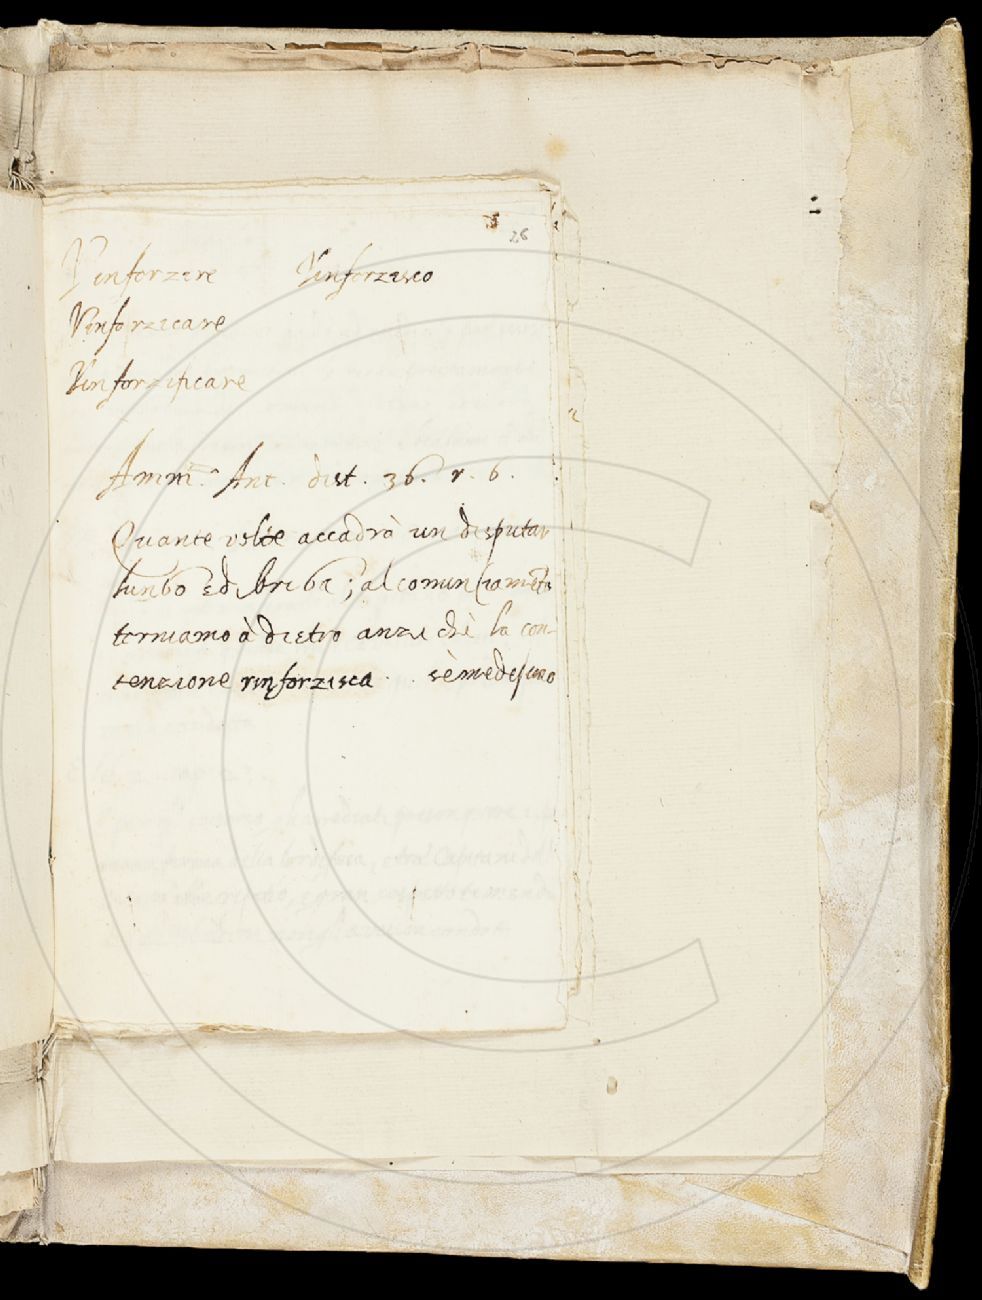 28
Rinforzare Rinforzisco
Rinforzicare
Rinforzificare
Amm. Ant. dist. 36. r. 6.
Quante volte accadrà un disputar
lungo ed briga; al cominciamẽto
torniamo à dietro anzi chè la con-
tenzione rinforzisca sè medesimo